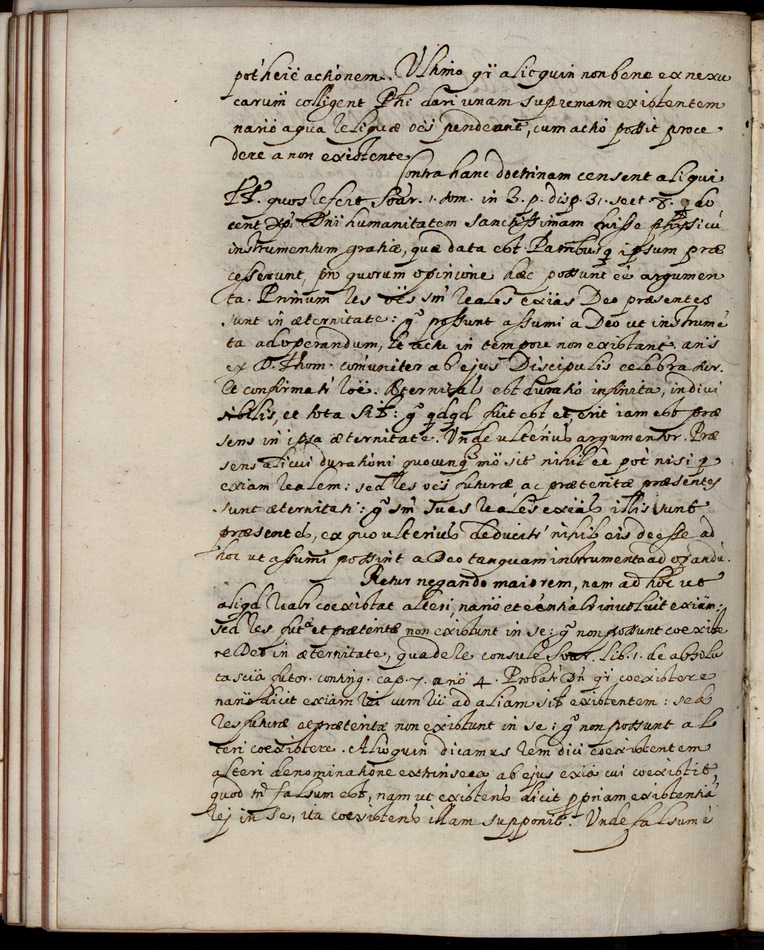 potheıē actionem. Ultimo qı̃ alioquin non bene ex nexu
earum̃ colligent Phi dari unam supremam existentem
nariò a qua reliquæ oēs pendeant, cum actio possit proce
dere a non existente
Contra hanc doctrinam censent aliqui
PP. quos refert Soar. 1. tom. in 3. p. disp. 31. sect. 8. do
cent Xpi Dni humanitatem sanctissimam fuisse physicũ
instrumentum gratiæ, quæ data est Patribus q ipsum præ
cesserunt, pro quorum opinione hæc possunt eē argumen
ta. Primum res oēs sm̃ reales exiãs Deo præsentes
sunt in æternitate: gͦ possunt assumi a Deo ut instrumẽ
ta ad operandum, et actu in tempore non existant. añs
ex D. Thom. com̃uniter ab ejus Discipulis celebratur.
Et confirmatʳ roẽ. Æternitas est duratio infinita, indivi
sibilis, et tota sił: gͦ qdqd fuit est et erit iam est præ
sens in ipsa æternitate. Unde ulterius argumentor. Præ
sens alicui durationi quocunq mõ sit nihil eē pot nisi p
exiam realem: sed res oēs futuræ ac præteritæ præsentes
sunt æternitati: gͦ sm̃ suas reales exias illi sunt
præsentes, ex quo ulterius deducitʳ nihil eis deesse ad
hoc ut assumi possint a Deo tanquam instrumenta ad opandũ.
Retur negando maiorem, nam ad hoc ut
aliqd realr coexistat alteri, nariò et eẽntialr involuit exiam:
sed res futᵃ et præteritæ non existunt in se: gͦ non possunt coexiste
re Deo in æternitate, qua de re consule Soar. lib. 1. de absolu
ta scia futor. conting. cap. 7. a nõ 4. Probatʳ Dñ qı̃ coexistere
nariò dicit exiam rei cum ad aliam sił existentem: sed
res futuræ ac præteritæ non existunt in se: gͦ non possunt al
teri coexistere. Alioquin dicamus rem dici coexistentem
alteri denominatione extrinseca ab ejus exia cui coexistit,
quod tñ falsum est, nam ut existens dicit ppriam existentiã
rej in se, ita coexistens illam supponit. Unde falsum ẽ